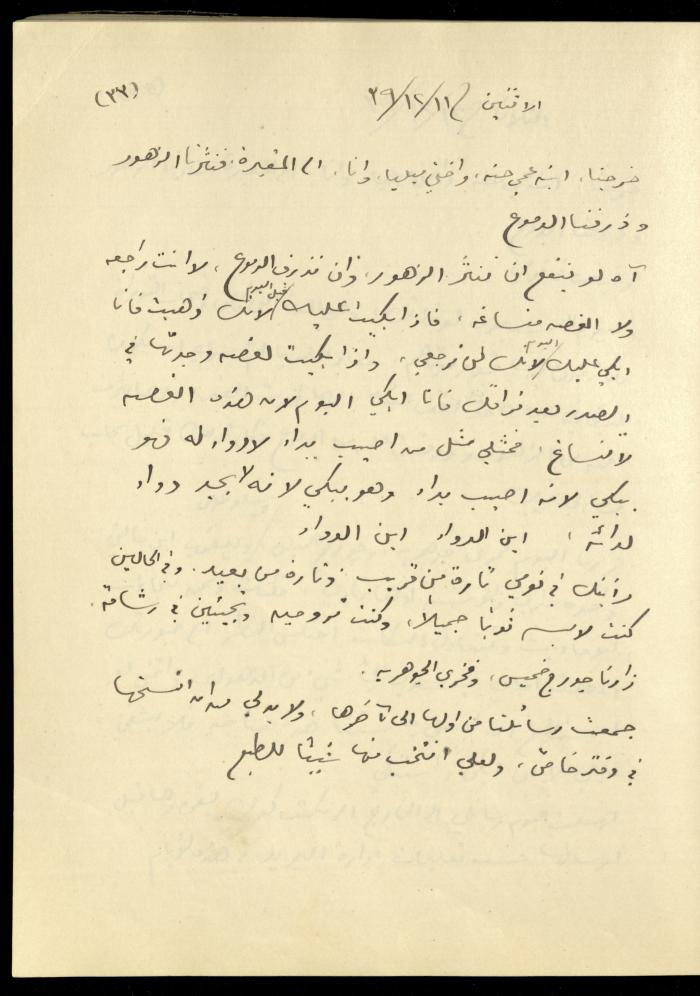 (٣٣)
الاثنين ١١/١٢/٣٩
خرجنا، ابنة عمي حنه، واختي ميليا، وانا، الى المقبرة، فنثرنا الزهور
وذرفنا الدموع
آه لو ينفع ان ننثر الزهور، وان نذرف الدموع، لا انت راجعه
ولا الغصه منساغه، فاذا بكيت عليك قبل اليوم لانك ذهبت فانا
ابكي عليك اليوم لانك لن ترجعي، واذا بكيت لغصه وجدتها في
الصدر بعد فراقك فانا ابكي اليوم لان هذه الغصه
لا تنساغ، فمثلي مثل من اصيب بداء لا دواء له فهو
يبكي لانه اصيب بداء وهو يبكي لانه لا يجد دواء
لدائه، اين الدواء اين الدواء
رأيتك في نومي تارة من قريب وتارة من بعيد. وفي الحالين
كنت لابسه ثوبا جميلاً، وكنت تروحين وتجيئين في رشاقة.
زارنا جورج خميس، وفخري الجوهريه.
جمعت رسائلنا من اولها الى آخرها، ولا بد لي من ان انسخها
في دفتر خاص، ولعلي انتخب منها شيئا للطبع